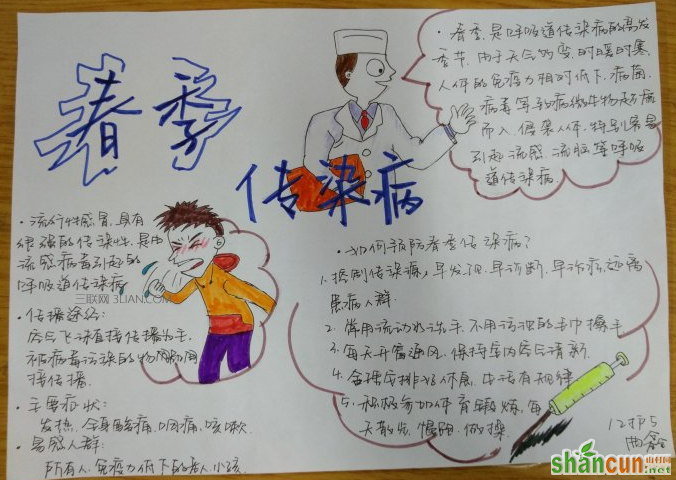 春季
传染病
·春季,是呼吸道传染病的高发
季节,由于天气多变,时暖时寒,
人体的免疫力相对低下,病菌、
病毒等致病微生物乘虚
而入,侵袭人体,特别容易
引起流感、流脑等呼吸
道传染病.
·流行性感冒,具有
很强的传染性,是由
流感病毒引起的
呼吸道传染病
三联网 3LIAN.COM
·传播途径:
空气飞沫直接传播为主,
被病毒污染的物品间
接传播.
·主要症状:
发热、全身酸痛、咽痛、咳嗽.
·易感人群:
所有人,免疫力低下的老人、小孩
·如何预防春季传染病?
1.控制传染源,早发现、早诊断、早治疗,远离
患病人群.
2.常用流动水洗手,不用污浊的毛巾擦手
3.每天开窗通风,保持室内空气清新
4.合理安排好休息,生活有规律
5.积极参加体育锻炼,每
天散步、慢跑、做操
12护5
shancun
.net